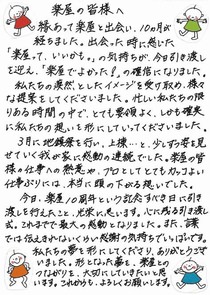 楽屋の皆様へ
縁あって楽屋と出会い、10ヵ月が
経ちました。出会った時に感じた
「楽屋って、いいかも。」の気持ちが、今日引き渡
しを迎え、「楽屋でよかった!」の確信になりました。
私たちの漠然としたイメージを受け取め、様々
な提案をしてくださいました。忙しい私たちの限
りある時間の中で、とても要領よく、しかも確実
に私たちの想いを形にしていってくださいました。
3月に地鎮祭を行い、上棟…と、少しずつ姿を見
せていく我が家に感動の連続でした。楽屋の皆
様の仕事への熱意や、プロとしてとてもかっこよい
仕事ぶりには、本当に頭の下がる思いでした。
今日、楽屋10周年という記念すべき日に引き
渡しを行えたこと、光栄に思います。心に残る引き渡し
式。これまでで最大の感動となりました。また、言葉
では伝えきれないくらい感謝の気持ちでいっぱいです。
私たちの夢を形にしてくださり、ありがとうござ
いました。形となった夢を、楽屋との
つながりを、大切にしていきたいと思
います。これからも、よろしくお願いします。